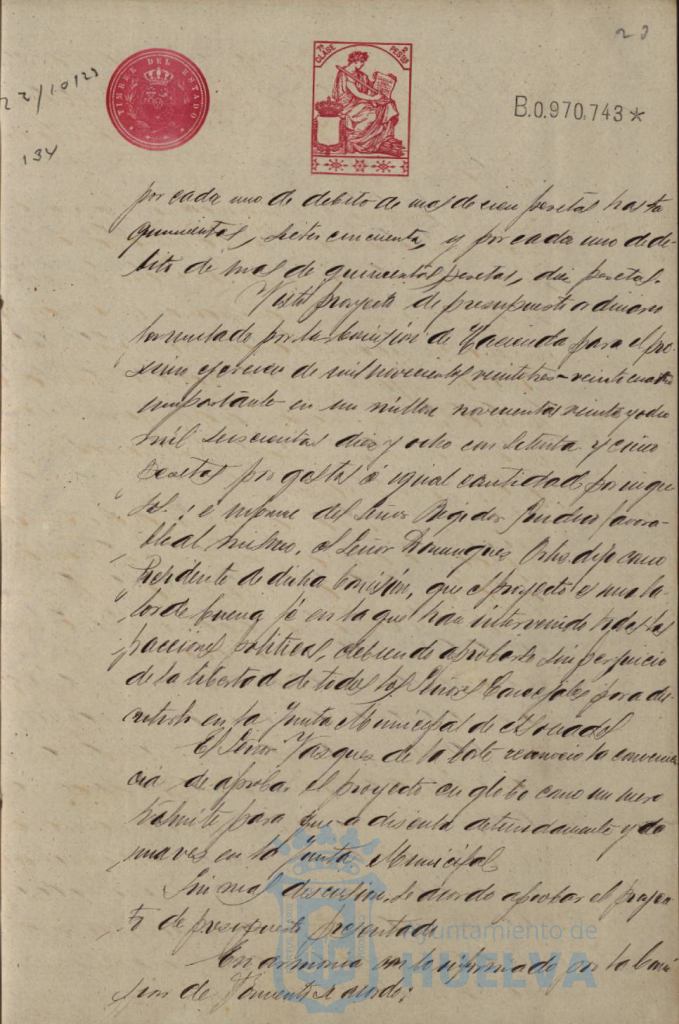 23
22/10/23
134
TIMBRE DEL ESTADO
7ª CLASE
2 PESETAS
B.0.970,743*
por cada uno de debito de mas de cien pesetas hasta
quinientas, siete cincuenta, y por cada uno de de-
bito de mas de quinientas pesetas, diez pesetas.
Visto proyecto de presupuesto ordinario
formulado por la Comisión de Hacienda para el pro-
ximo ejercicio de mil novecientos veintitres-veinticuatro
importante en un millon novecientas veinte y dos
mil seiscientas diez y ocho con setenta y cinco
pesetas por gastos é igual cantidad por ingre-
sos; é informe del Señor Regidor Sindico favora-
ble al mismo, el Señor Dominguez Ortiz dijo como
Presidente de dicha Comisión, que el proyecto es una la-
bor de buena fé en la que han intervenido todas las
fracciones politicas, debiendo aprobarse sin perjuicio
de la libertad de todos los Señores Concejales para
en la Junta Municipal de Asociados
El Señor Vazquez de la Corte reconoció la convenien-
cia de aprobar el proyecto en globo como un mero
tramite para que se discuta detenidamente y
en la Junta Municipal
Sin mas discusion, se acordó aprobar el proyec-
to de presupuesto presentado
En armonia con lo informado por la Comi-
sion de Fomento se acordó:
Ayuntamiento de
HUELVA